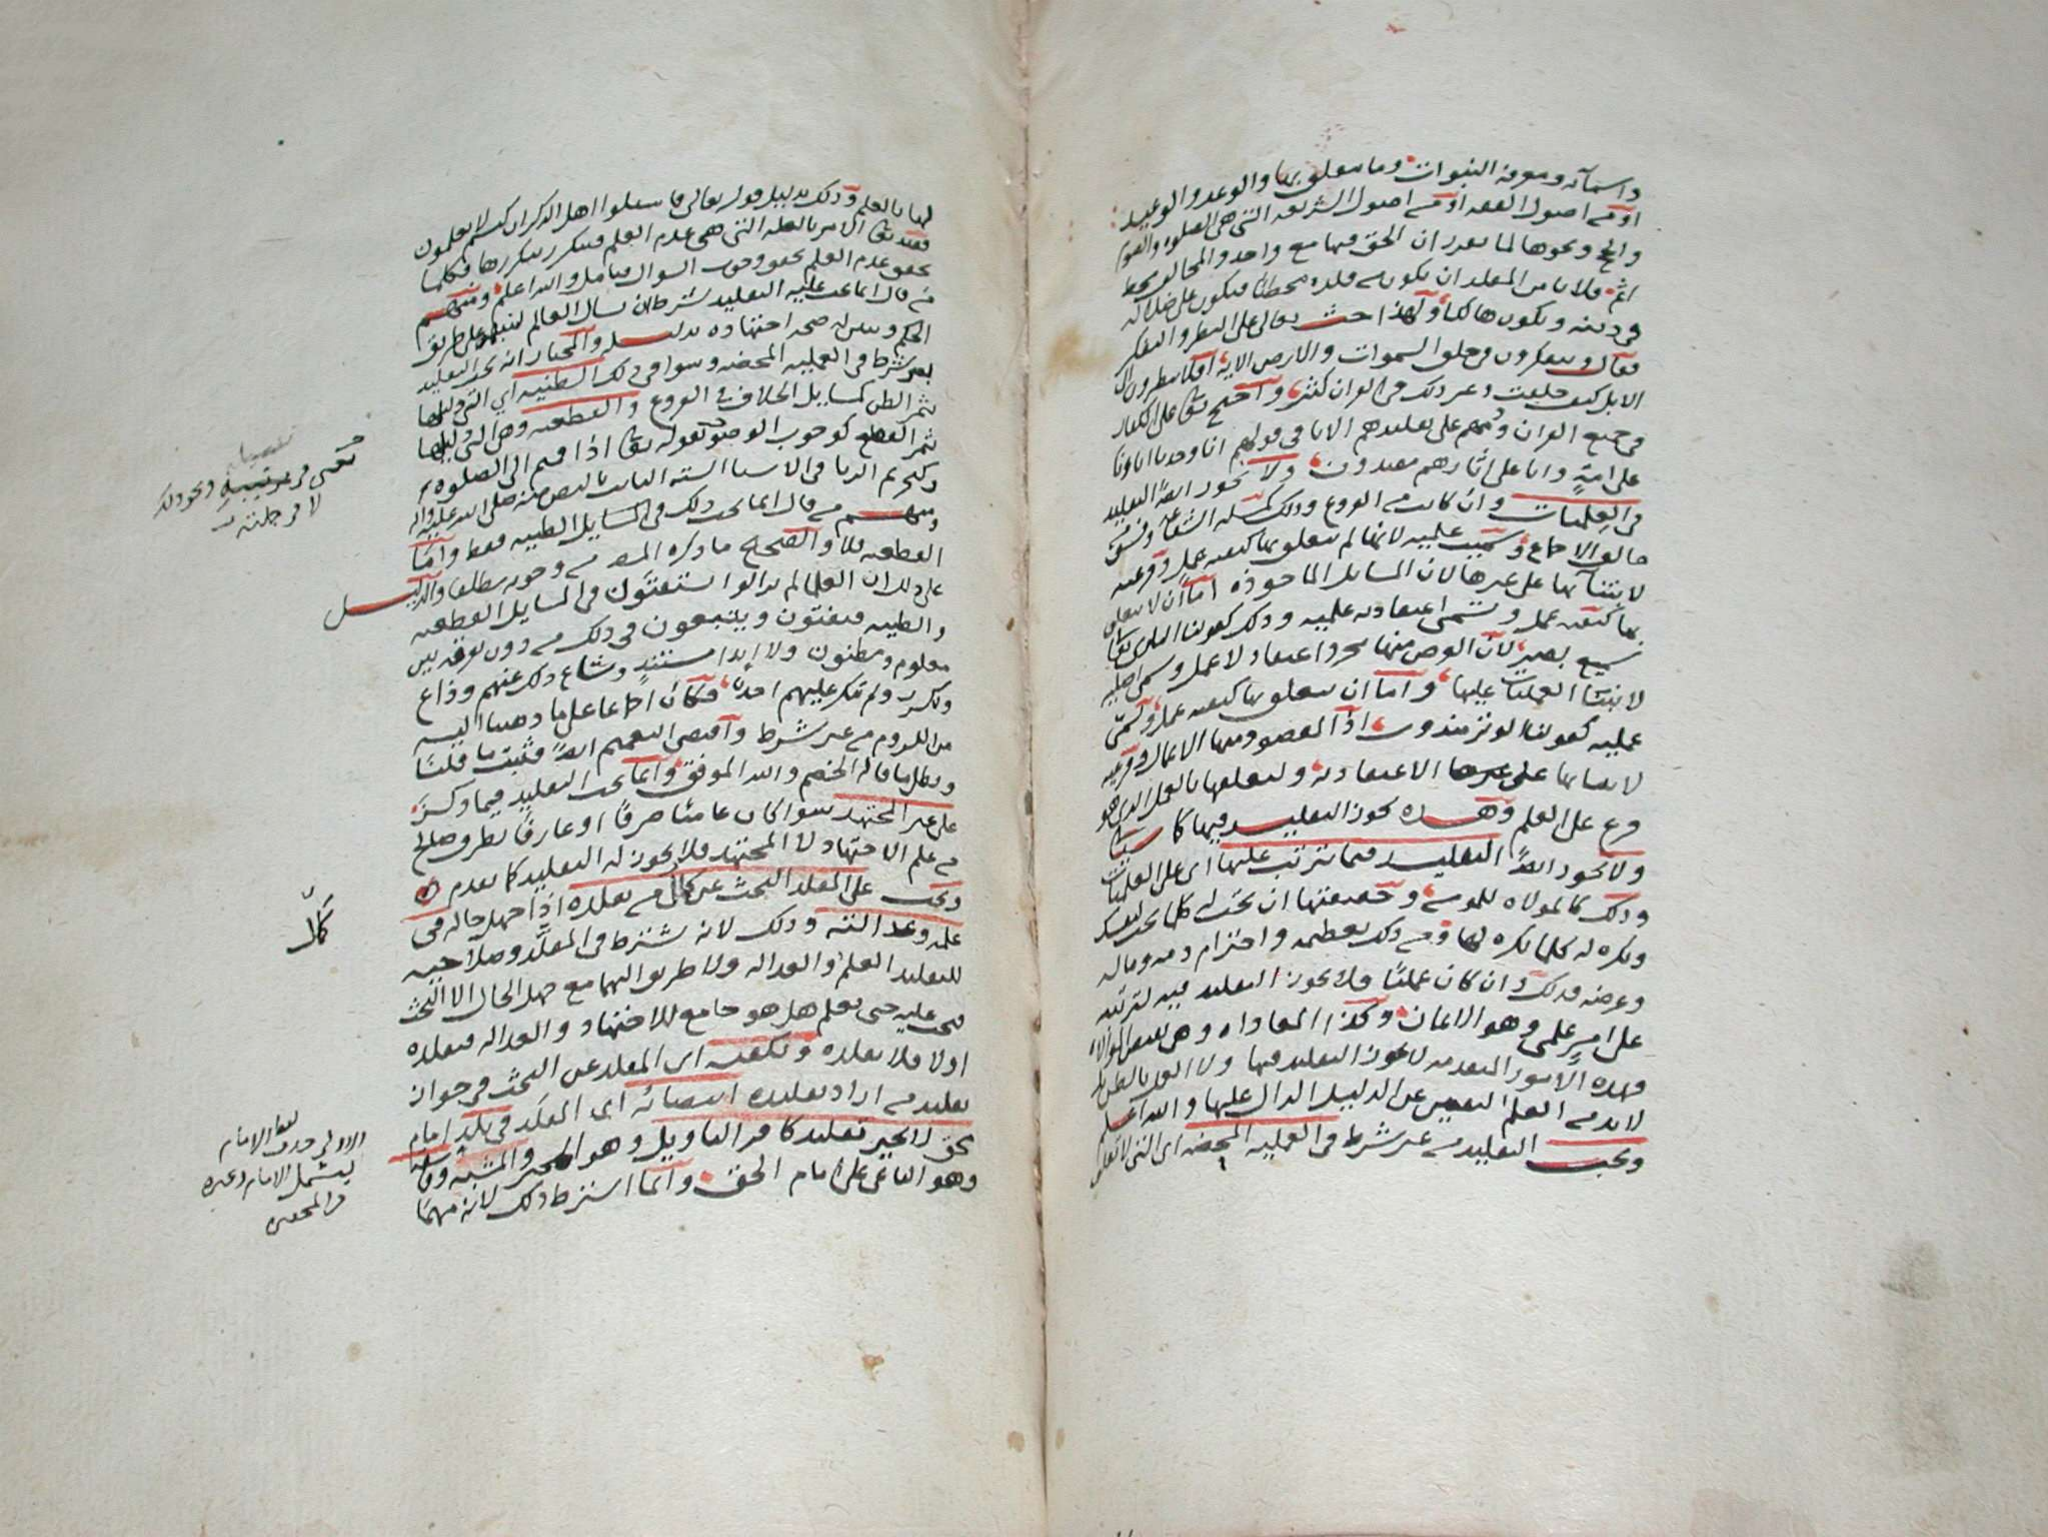 واسمائه ومعرفة النبوات وما يتعلق بها والوعد والوعيد
او من اصول الفقه او من اصول الشريعة التي هي الصلوة والصوم
والحج ونحوها لما تقرر ان الحق فيها مع واحد والمخالف مخط
اثم فلا يامن المقلد ان يكون من قلده مخطئا فيكون على ضلالة
في دينه ويكون هالكا ولهذا حث تعالى على النظر والتفكر
فقال ويتفكرون في خلق السموات والارض الاية افلا ينظرون الى
الابل كيف خلقت وغير ذلك في القران كثير واحتج تعالى على الكفار
في جميع القران وذمهم على تقليدهم الابا في قولهم انا وجدنا اباونا
على امة وانا على اثارهم مقتدون ولا يجوز ايضا التقليد
في العلميات وان كانت من الفروع وذلك كمسلة الشفاعة وفسق
خالف الاجماع وسميت علمية لانها لم يتعلق بها كيفية عمل وفرعية
لابتنائها على غيرها لان المسايل الماخوذة اما ان لا يتعلق
بها كيفية عمل وتسمى اعتقادية علمية وذلك كقولنا البارى تعالى
سميع بصير لان الغرض منها مجرد اعتقاد لا عمل وسمى اصلية
لابتنا العمليات عليها واما ان يتعلق بها كيفية عمل وتسمى
عملية كقولنا الوتر مندوب اذ المقصود منها الاعمال وفرعية
لابتنائها على غيرها الاعتقادية ولتعلقها بالعمل الذي هو
فرع على العلم وهذه يجوز التقليد فيها كما سياتي
ولا يجوز ايضا التقليد فيما يترتب عليها اي على العلميات
وذلك كالموالاة للمومن وحقيقتها ان تحب له كلما تحب لنفسك
وتكره له كلما تكره لها ومن ذلك تعظيمه واحترام دمه وماله
وعرضه فذلك وان كان عمليا فلا يجوز التقليد فيه لترتبه
على امر علمي وهو الايمان وكذا المعاداة وهي نقيض الموالاة
فهذه الامور المتقدمة لا يجوز التقليد فيها ولا العمل بالظن بل
لابد من العلم اليقين عن الدليل الدال عليها والله اعلم
ويجب التقليد من غير شرط في العملية المحضة اي التي لا تعلق
لها بالعلم وذلك بدليل قوله تعالى فاسئلوا اهل الذكر ان كنتم لا تعلمون
فقيد تعالى الامر بالعلة التي هي عدم العلم فيتكرر بتكررها فكلما
تحقق عدم العلم تحقق وجوب السوال فتامل والله اعلم ومنهم
من قال انما يجب عليه التقليد بشرط ان يسال العالم لينبهه على طريق
الحكم ويبين له صحة اجتهاده بدليله والمختار انه يجب التقليد
بغير شرط في العملية المحضة وسوا في ذلك الظنية اي التي دليلها
يثمر الظن كمسايل الخلاف في الفروع والقطعية وهي التي دليلها
يثمر القطع كوجوب الوضو لقوله تعالى اذا قمتم الى الصلوة
وكتحريم الربا في الاشيا الستة الثابت بالنص منه صلى الله عليه واله
ومنهم من قال انما يجب ذلك في المسايل الظنية فقط واما
القطعية فلا والصحيح ما ذكره المص من وجوبه مطلقا والدليل
على ذلك ان العلما لم يزالوا يستفتون في المسايل القطعية
والظنية فيفتون ويتبعون في ذلك من دون تفرقة بين
معلوم ومظنون ولا ابدا مستند وشاع ذلك عنهم وذاع
وتكرر ولم ينكر عليهم احد فكان اجماعا على ما ذهبنا اليه
من اللزوم من غير شرط واقتضى التعميم ايضا فثبت ما قلنا
وبطل ما قاله الخصم والله الموفق وانما يجب التقليد فيما ذكر
على غير المجتهد سوا كان عاميا صرفا او عارفا بطرف صالح
من علم الاجتهاد لا المجتهد فلا يجوز له التقليد كما تقدم
ويجب على المقلد البحث عن كمال من يقلده اذا جهل حاله في
علمه وعدالته وذلك لانه يشترط في المقلد وصلاحيته
للتقليد العلم والعدالة ولا طريق اليهما مع جهل الحال الا البحث
فيجب عليه حتى يعلم هل هو جامع للاجتهاد والعدالة فيقلده
او لا فلا يقلده ويكفيه اي المقلد عن البحث في جواز
تقليد من اراد تقليده انتصابه اي المقلد في بلد امام
حق لا يجيز تقليد كافر التاويل وهو المجبر والمشبه وفاسقه
وهو الباغي على امام الحق وانما اشترط ذلك لانه مهما
لا في جلتة
كمال
الاولى حذف لفظ الامام
ليشمل الامام وغيره